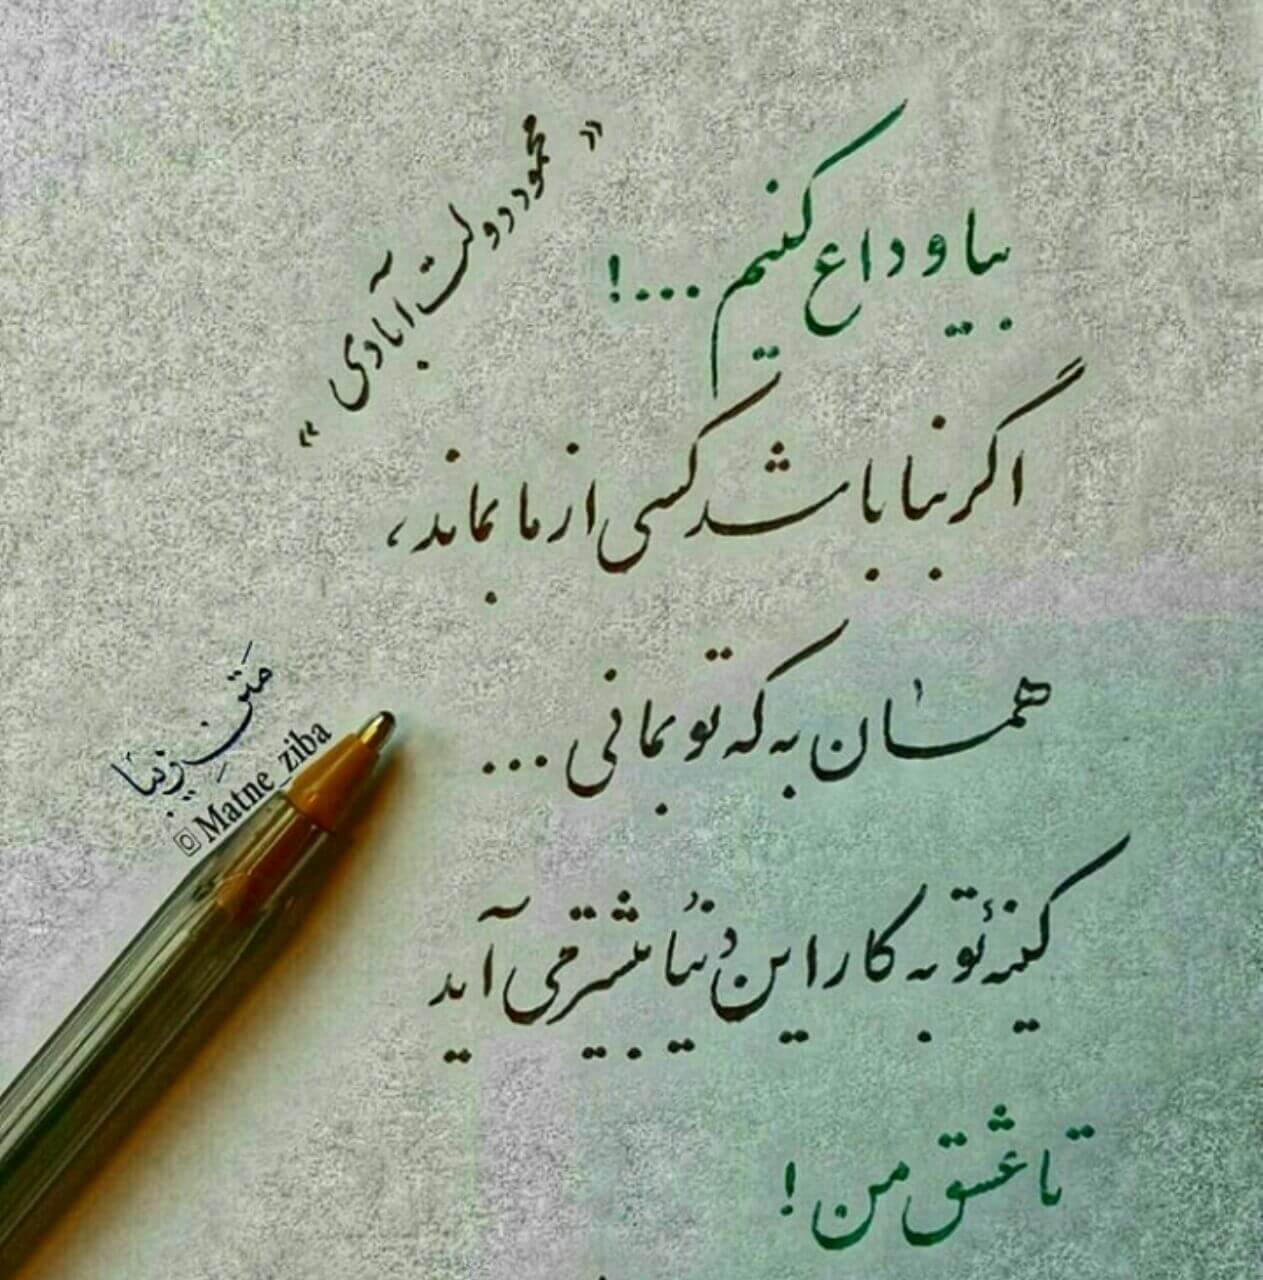 بیا وداع کنیم ...!
«محمود دولت آبادی»
اگر بنا باشد کسی از ما بماند،
همان به که تو بمانی ...
کینهٔ تو به کار این دنیا بیشتر می آید
تا عشق من !
مَتنِ زیبَا
Matne_ziba